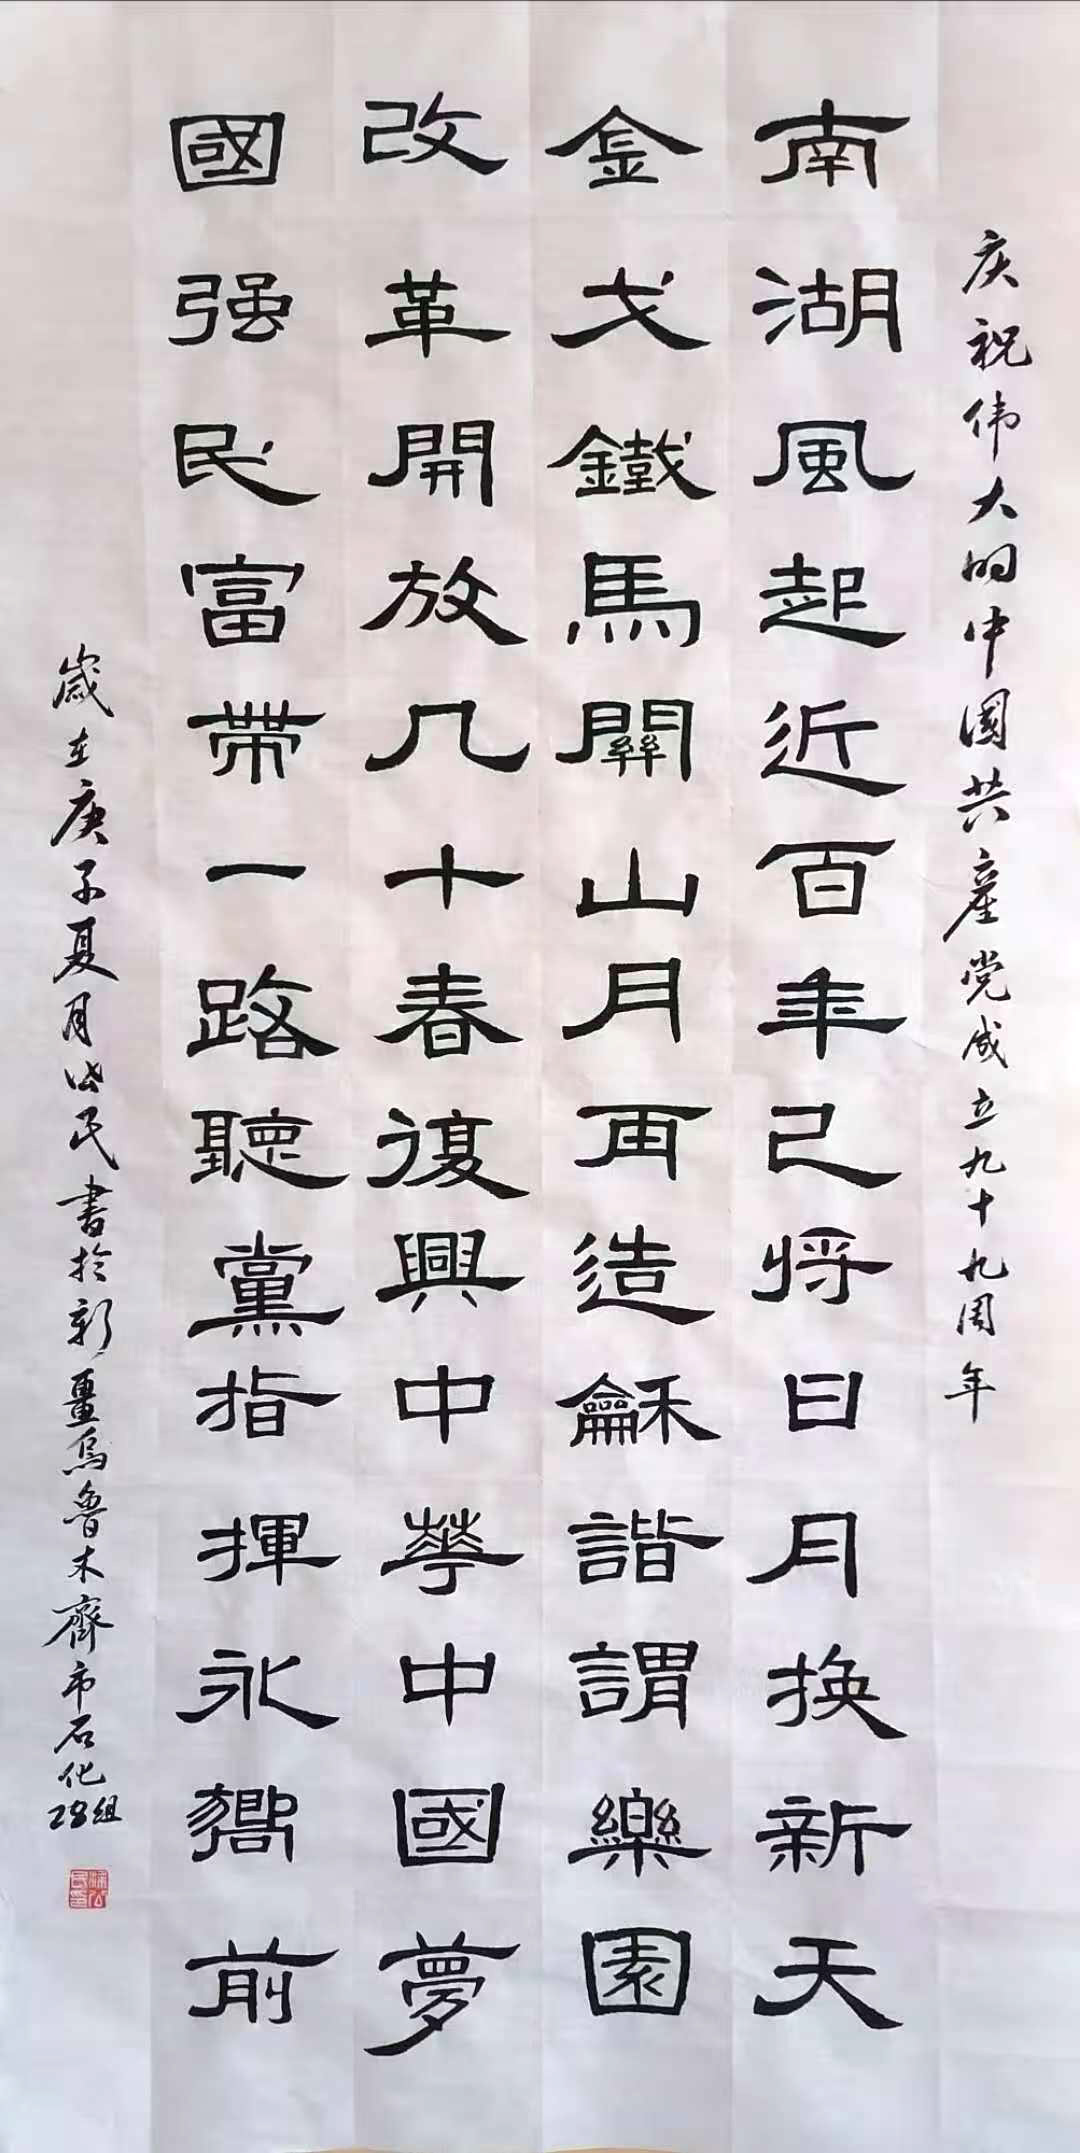 庆祝伟大的中國共産党成立九十九周年
南湖風起近百年已将日月换新天
金戈鐵馬關山月再造龢諧謂樂園
改革開放几十春復興中華中國夢
國强民富帶一路聽黨指揮永嚮前
歲在庚子夏月民書於新畺烏魯木齊市石化28组